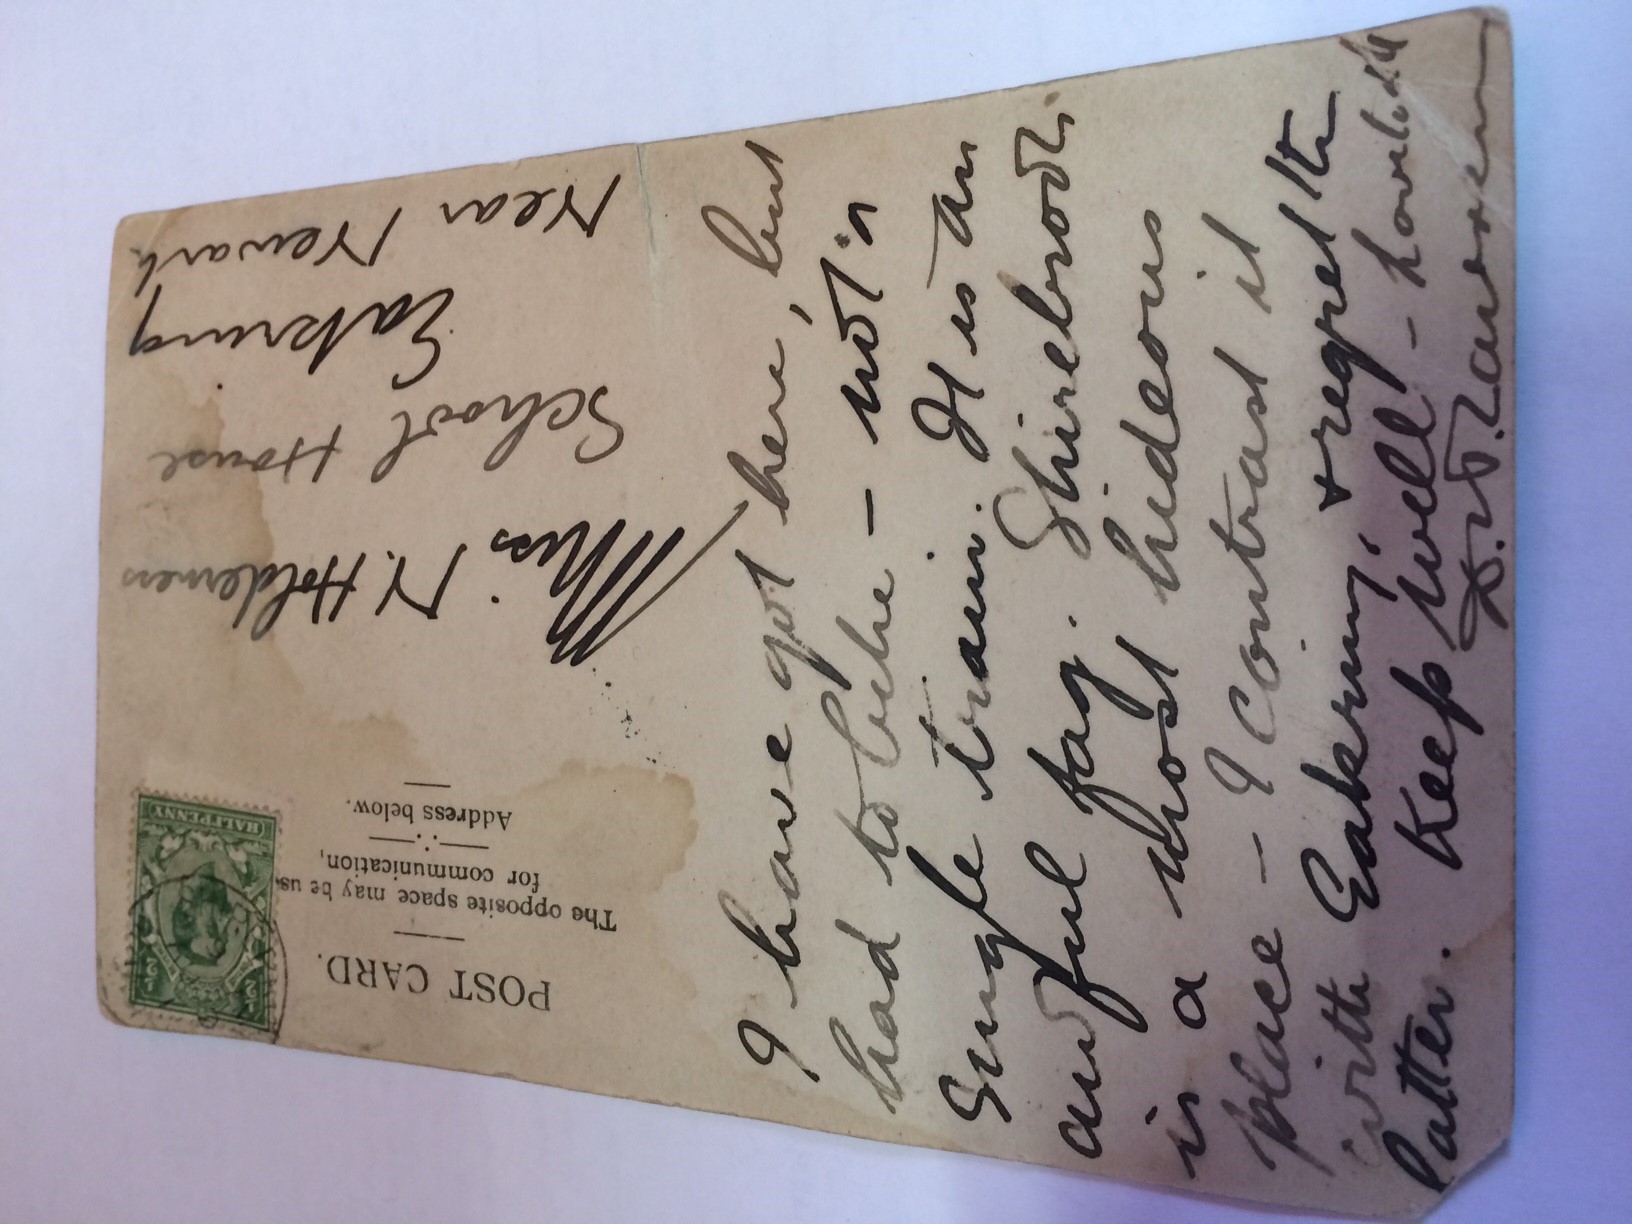 POST CARD.
The opposite space may be us
for communication,
Address below.
HALFPENNY
Miss N. Holderness
School House
Eakring
Near Newark
I have got here, but
had to bike – not a
single train. It is an
awful fag. Shirebrook
is a most hideous
place – I contrast it
with Eakring, & regret the
latter. Keep well –
D. H. Lawrence